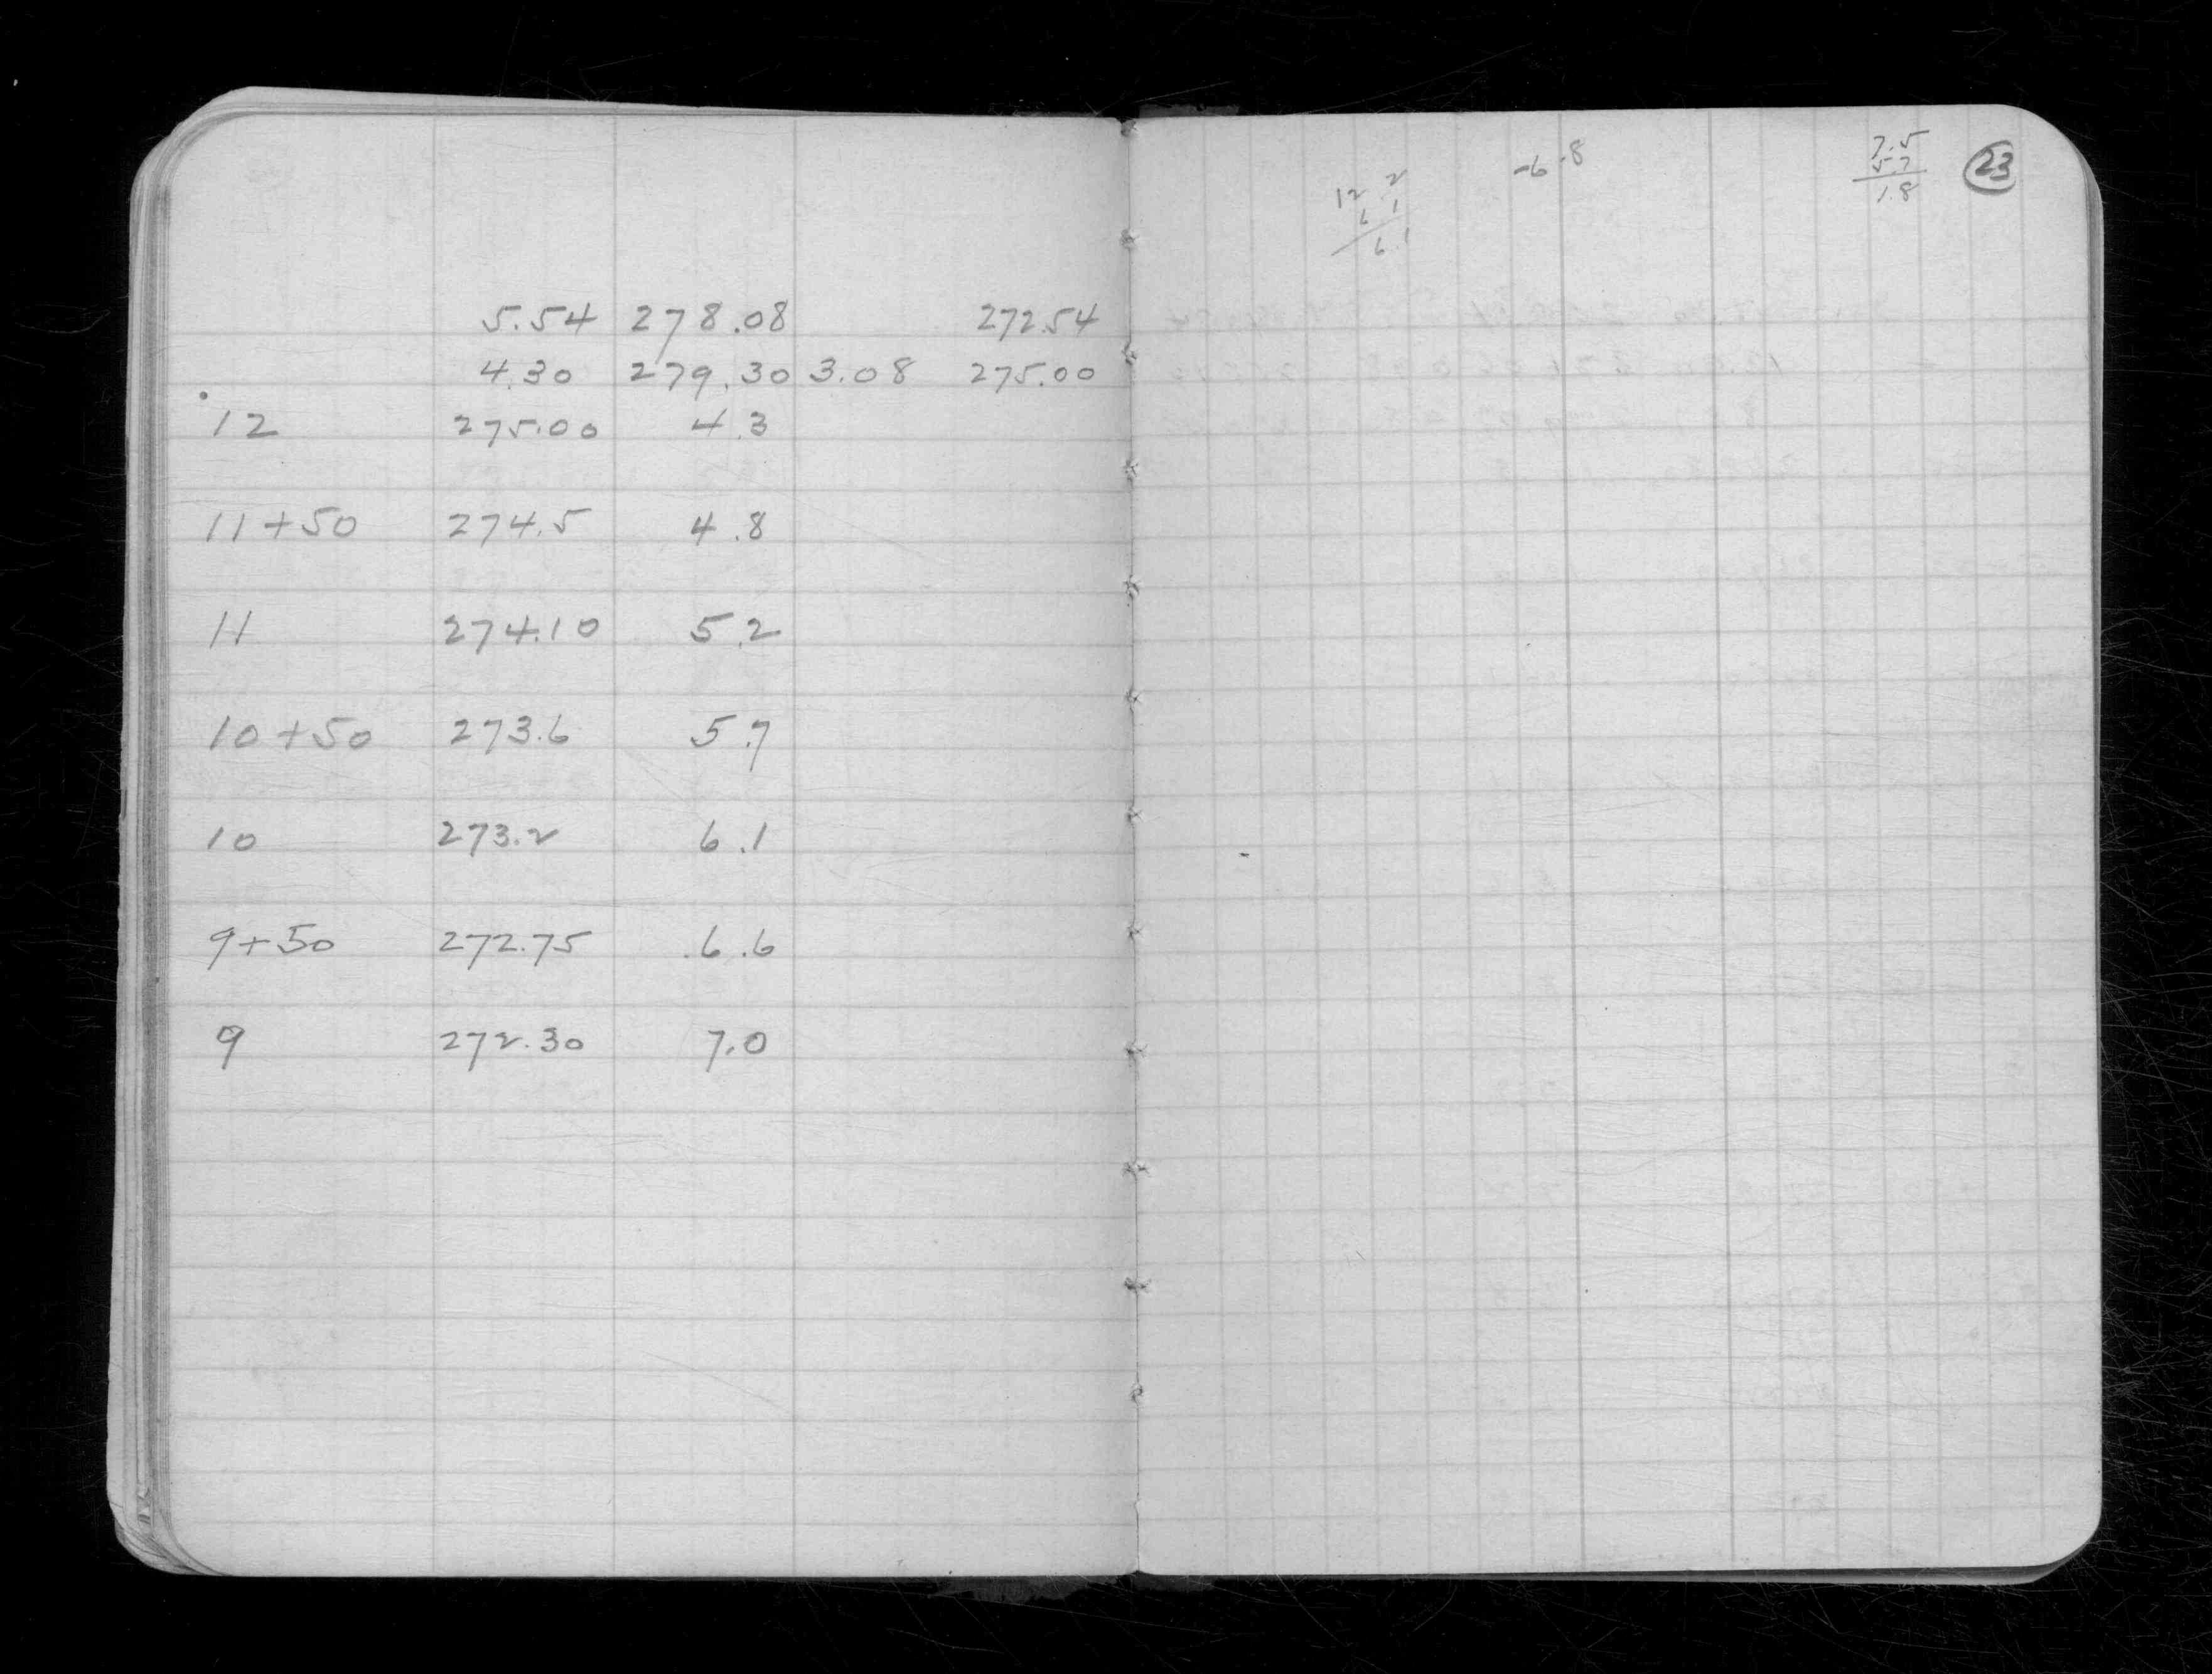 5.54 278.08 272.54
4.30 279.30 3.08 275.00
12 275.00 4.3
11+50 274.5 4.8
11 274.10 5.2
10+50 273.6 5.7
10 273.2 6.1
9+50 272.75 6.6
9 272.30 7.0
12 2
6 1
6.1
-6.8
7.5
5.7
1.8
23